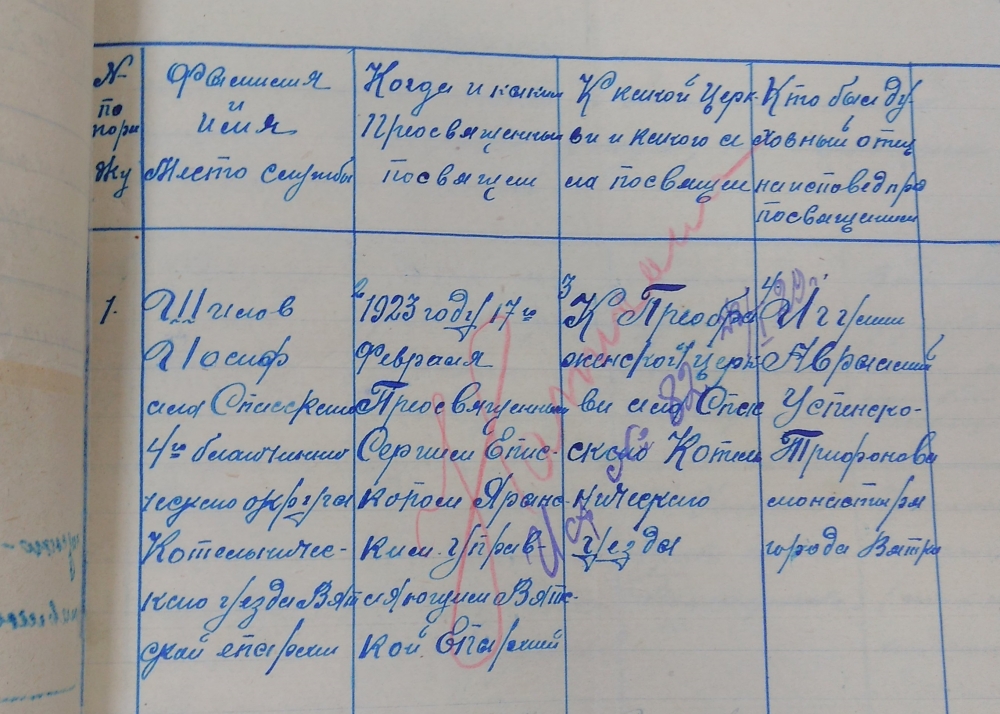 № по поря дку
Фамилия и Имя Место службы
Когда и каким Преосвященным посвящен
К какой Церк ви и какого се ла посвящен
Кто был ду ховный отец на исповед пред посвящением
1.
Шилов
Иосиф
села Спасскаго
4го благочинни
ческаго округа
Котельничес-
каго уезда Вят
ской епархии
2 1923 году 17го
Февраля
Преосвященным
Сергием Епис-
копом Яранс-
ким. Управ-
ляющим Вятс-
кой Епархией
3 К Преобра
женской церк
ви села Спас
скаго Котель
ническаго
уезда
4 Игумен
Успенско-
Трифонова
монастыря
города Вятка